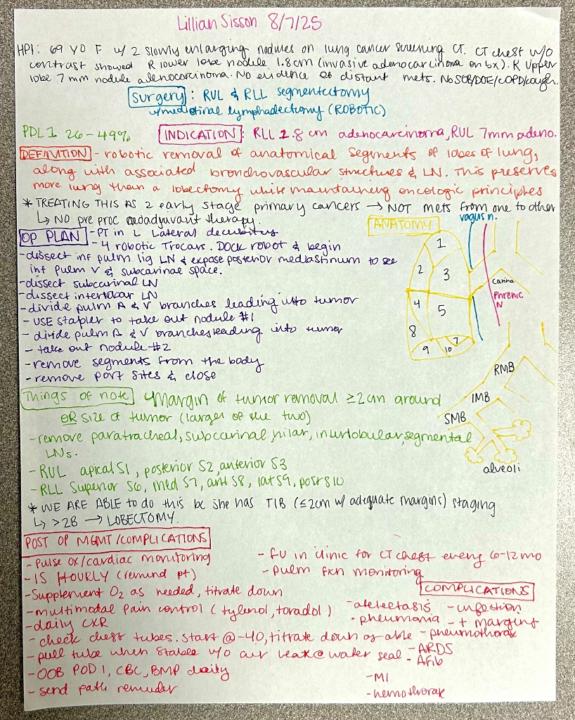 Lillian Sisson 8/7/25
HPI: 69 YO F w/ 2 slowly enlarging nodules on lung cancer screening CT. CT chest w/o
contrast showed R lower lobe nodule 1.8cm (invasive adenocarcinoma on bx). R upper
lobe 7mm nodule adenocarcinoma. No evidence of distant mets. No SOB/DOE/COPD/cough.
Surgery: RUL & RLL segmentectomy
w/mediastinal lymphadectomy (ROBOTIC)
PDL1 26-49%
INDICATION: RLL 2.8 cm adenocarcinoma, RUL 7mm adeno.
DEFINITION - robotic removal of anatomical segments of lobes of lung,
along with associated bronchovascular structures & LN. This preserves
more lung than a lobectomy while maintaining oncologic principles
* TREATING THIS AS 2 early stage primary cancers → NOT mets from one to other
↳ NO pre proc neoadjuvant therapy.
OP PLAN - PT in L Lateral decubitus
- 4 robotic Trocars. Dock robot & begin
- dissect inf pulm lig LN & expose posterior mediastinum to see
inf pulm V & subcarinal space.
- dissect subcarinal LN
- dissect interlobar LN
- divide pulm A & V branches leading into tumor
- USE stapler to take out nodule #1
- divide pulm A & V branches leading into tumor
- take out nodule #2
- remove segments from the body
- remove port sites & close
ANATOMY
vagus n.
1
2
3
4
5
8
9
10
7
carina
Phrenic
N
RMB
IMB
SMB
alveoli
Things of note margin of tumor removal ≥2cm around
OR size of tumor (larger of the two)
- remove paratracheal, subcarinal, hilar, interlobular, segmental
LNs.
- RUL apical S1, posterior S2, anterior S3
- RLL Superior S6, med S7, ant S8, lat S9, post S10
* WE ARE ABLE to do this bc she has T1B (≤2cm w/ adequate margins) staging
↳ >2B → LOBECTOMY.
POST OP MGMT/COMPLICATIONS
- Pulse ox/cardiac monitoring
- IS HOURLY (remind pt)
- Supplement O2 as needed, titrate down
- multimodal pain control (tylenol, toradol)
- daily CXR
- check chest tubes. start @ -40, titrate down as able
- pull tube when stable w/o air leak @ water seal
- OOB POD1, CBC, BMP daily
- send path reminder
- FU in clinic for CT chest every 6-12mo
- pulm fxn monitoring
COMPLICATIONS
- atelectasis
- infection
- pneumonia
- + margins
- pneumothorax
- ARDS
- Afib
- MI
- hemothorax